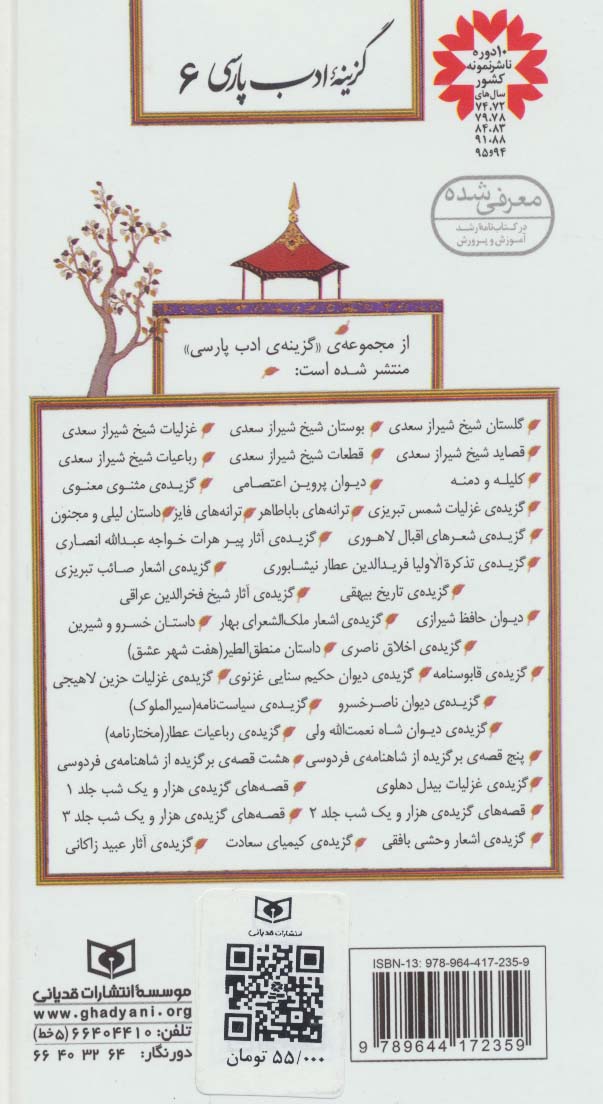 گزینهٔ ادب پارسی ۶
۱۰ دوره
ناشر نمونه
کشور
سال‌های
۷۴،۷۲
۷۹،۷۸
۸۴،۸۳
۹۱،۸۸
۹۴و۹۵
معرفی شده
در کتاب‌نامهٔ رشد
آموزش و پرورش
از مجموعه‌ی «گزینه‌ی ادب پارسی»
منتشر شده است:
گلستان شیخ شیراز سعدی بوستان شیخ شیراز سعدی غزلیات شیخ شیراز سعدی
قصاید شیخ شیراز سعدی قطعات شیخ شیراز سعدی رباعیات شیخ شیراز سعدی
کلیله و دمنه دیوان پروین اعتصامی گزیده‌ی مثنوی معنوی
گزیده‌ی غزلیات شمس تبریزی ترانه‌های باباطاهر ترانه‌های فایز داستان لیلی و مجنون
گزیده‌ی شعرهای اقبال لاهوری گزیده‌ی آثار پیر هرات خواجه عبدالله انصاری
گزیده‌ی تذکرة الاولیا فریدالدین عطار نیشابوری گزیده‌ی اشعار صائب تبریزی
گزیده‌ی تاریخ بیهقی گزیده‌ی آثار شیخ فخرالدین عراقی
دیوان حافظ شیرازی گزیده‌ی اشعار ملک‌الشعرای بهار داستان خسرو و شیرین
گزیده‌ی اخلاق ناصری داستان منطق‌الطیر(هفت شهر عشق)
گزیده‌ی قابوسنامه گزیده‌ی دیوان حکیم سنایی غزنوی گزیده‌ی غزلیات حزین لاهیجی
گزیده‌ی دیوان ناصرخسرو گزیده‌ی سیاست‌نامه(سیرالملوک)
گزیده‌ی دیوان شاه نعمت‌الله ولی گزیده‌ی رباعیات عطار(مختارنامه)
پنج قصه‌ی برگزیده از شاهنامه‌ی فردوسی هشت قصه‌ی برگزیده از شاهنامه‌ی فردوسی
گزیده‌ی غزلیات بیدل دهلوی قصه‌های گزیده‌ی هزار و یک شب جلد ۱
قصه‌های گزیده‌ی هزار و یک شب جلد ۲ قصه‌های گزیده‌ی هزار و یک شب جلد ۳
گزیده‌ی اشعار وحشی بافقی گزیده‌ی کیمیای سعادت گزیده‌ی آثار عبید زاکانی
ISBN-13: 978-964-417-235-9
9 789644 172359
انتشارات قدیانی
۵۵/۰۰۰ تومان
موسسهٔ انتشارات قدیانی
www.ghadyani.org
تلفن: ۶۶۴۰۴۴۱۰ (۵خط)
دورنگار: ۶۶ ۴۰ ۳۲ ۶۴